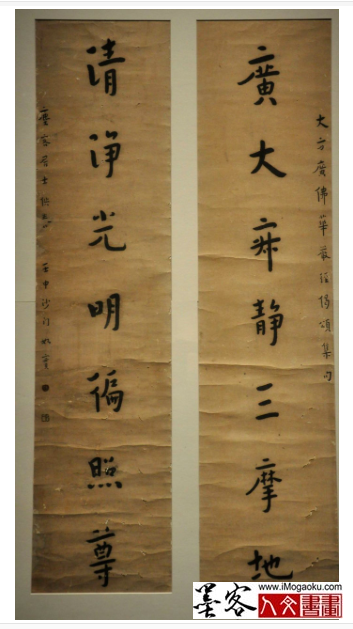 大方廣佛華嚴經偈頌集句
廣大寂靜三摩地
清淨光明徧照尊
居士供養 壬申沙門
www.iMogaoku.com
墨客 人文書畫